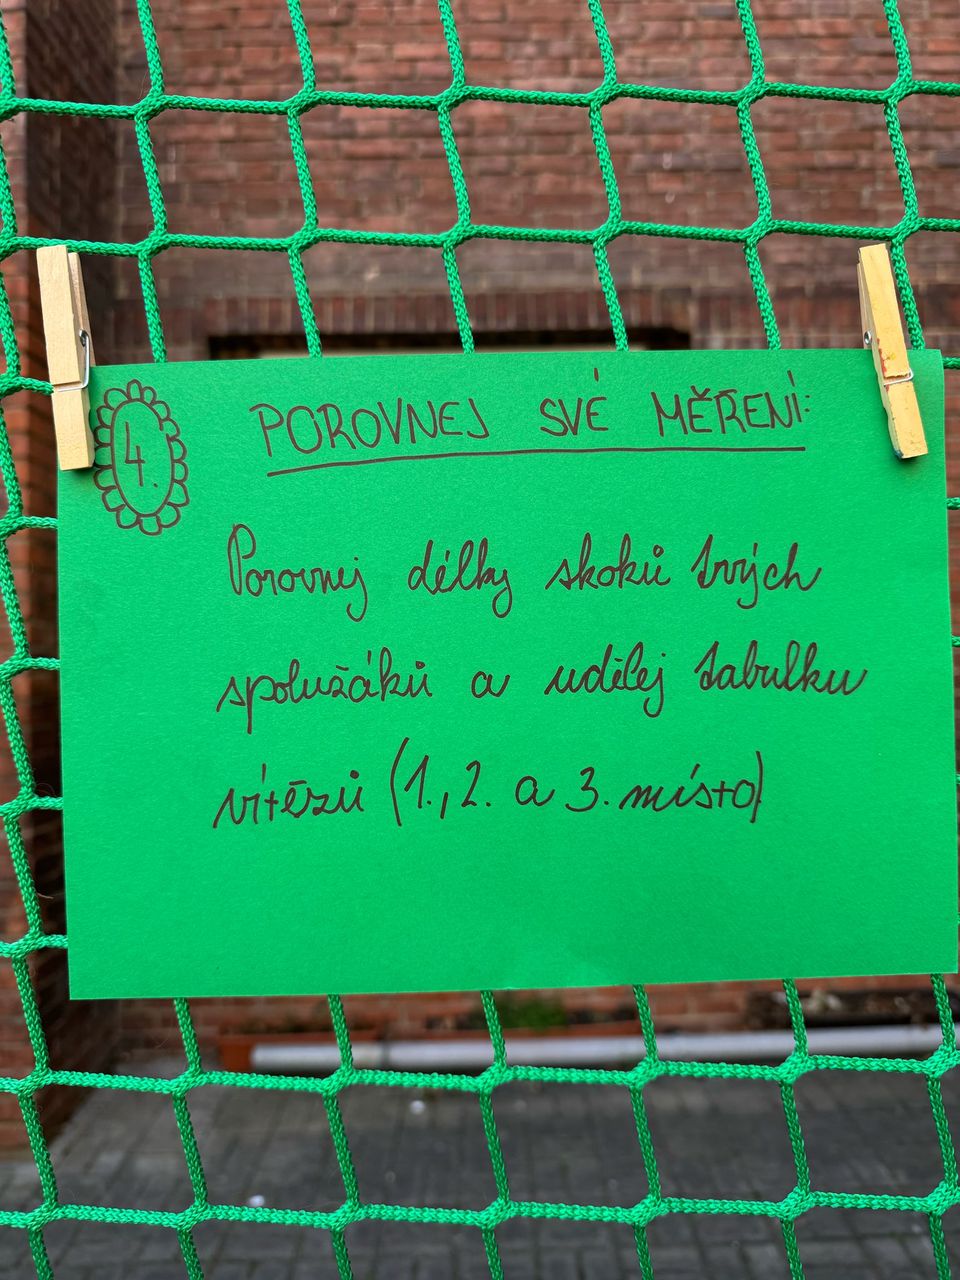 4.
POROVNEJ SVÉ MĚŘENÍ:
Porovnej délky skoků tvých
spolužáků a udělej tabulku
vítězů (1., 2. a 3. místo)